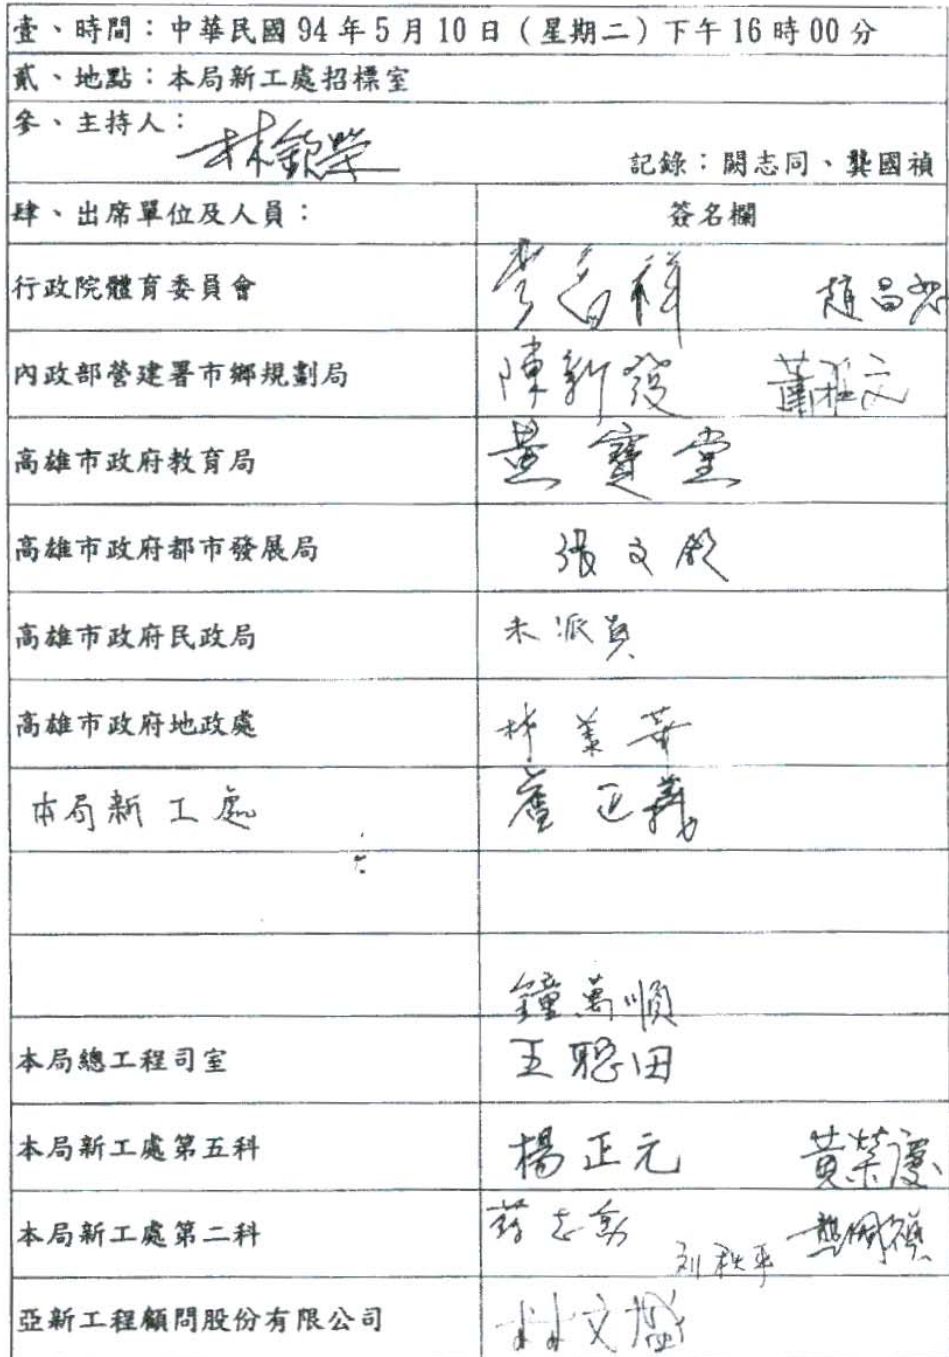 壹、時間：中華民國94年5月10日（星期二）下午16時00分
貳、地點：本局新工處招標室
參、主持人：林欽榮
記錄：闕志同、龔國禎
肆、出席單位及人員： 簽名欄
行政院體育委員會
內政部營建署市鄉規劃局 陳新發
高雄市政府教育局 黃寶堂
高雄市政府都市發展局 張文欽
高雄市政府民政局 未派員
高雄市政府地政處 林美華
本局新工處 正義
鐘萬順
本局總工程司室 王聰田
本局新工處第五科 楊正元 黃榮慶
本局新工處第二科 龔國禎
亞新工程顧問股份有限公司 林文盛